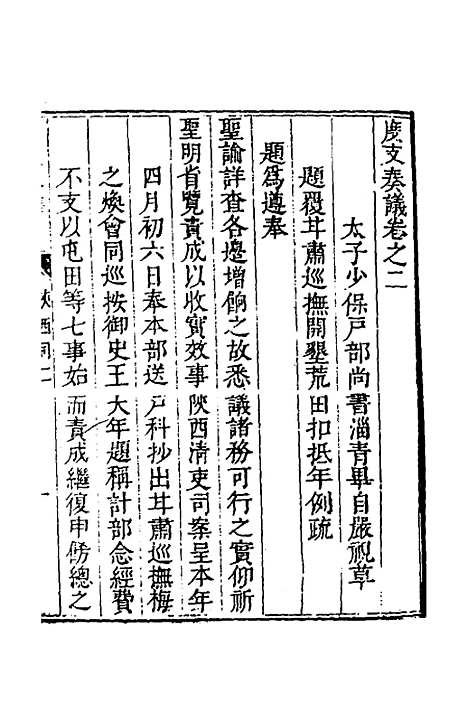 度支奏議卷之二
太子少保戶部尚書淄青畢自嚴視草
題覆甘肅巡撫開墾荒田扣抵年例疏
題爲遵奉
聖諭詳查各邊增餉之故悉議諸務可行之實仰祈
聖明省覽責成以收實效事陝西清吏司案呈本年
四月初六日奉本部送戶科抄出甘肅巡撫梅
之煥會同巡按御史王大年題稱計部念經費
不支以屯田等七事始而責成繼復申飭總之
陝西司二
一